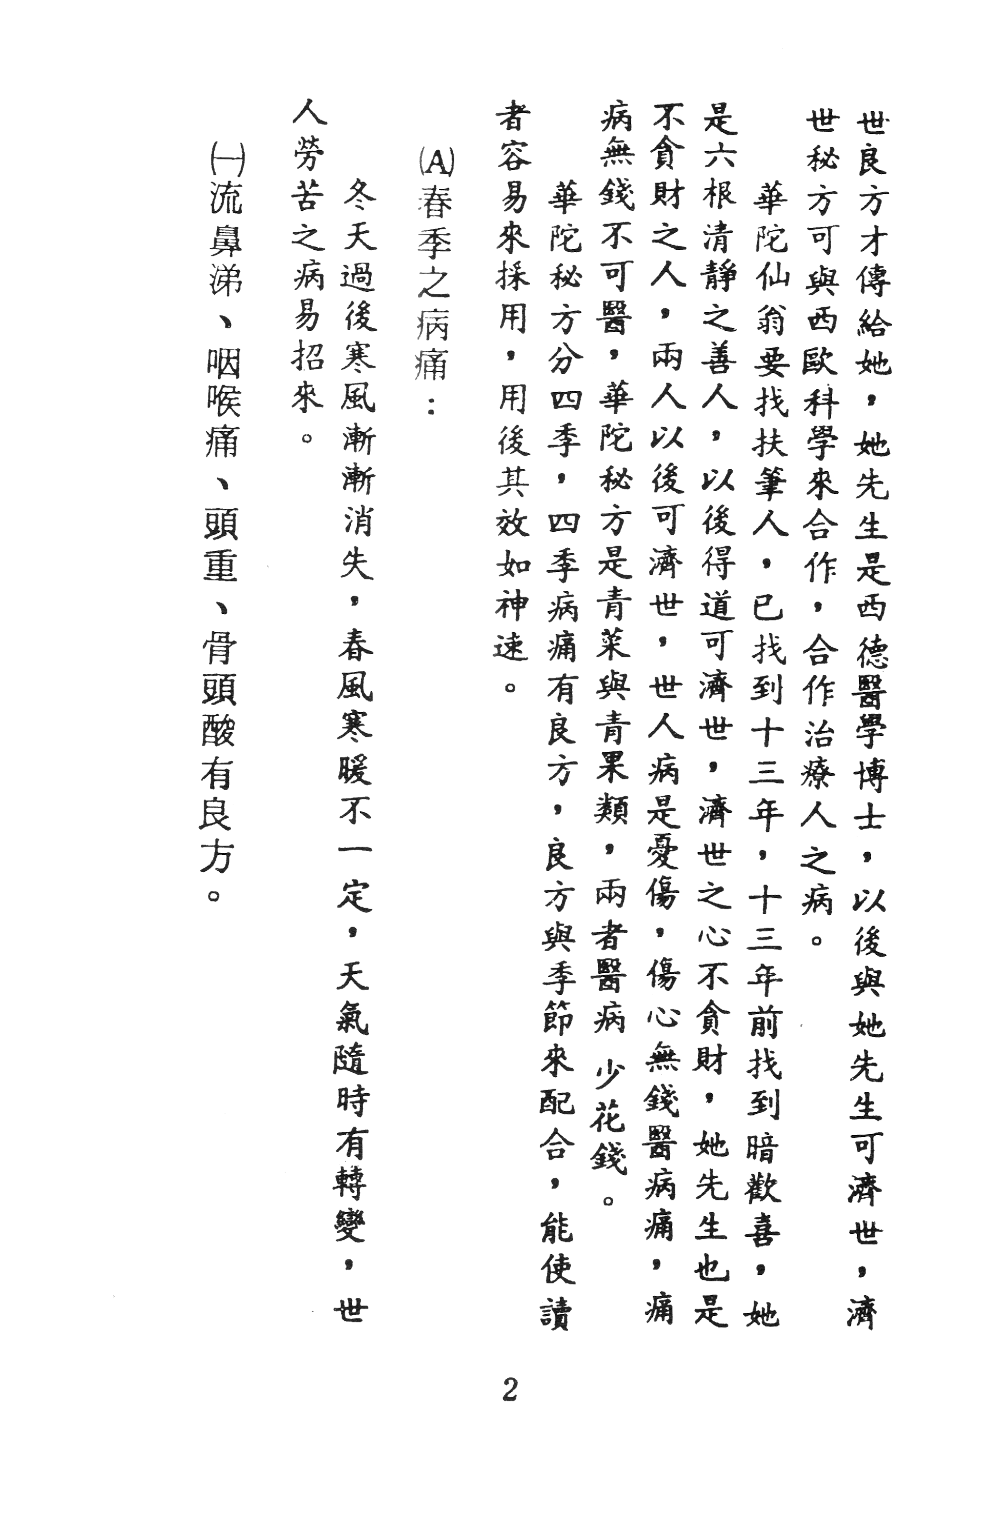 世良方才傳給她，她先生是西德醫學博士，以後與她先生可濟世，濟
世秘方可與西歐科學來合作，合作治療人之病。
華陀仙翁要找扶筆人，已找到十三年，十三年前找到暗歡喜，她
是六根清靜之善人，以後得道可濟世，濟世之心不貪財，她先生也是
不貪財之人，兩人以後可濟世，世人病是憂傷，傷心無錢醫病痛，痛
病無錢不可醫，華陀秘方是青菜與青果類，兩者醫病少花錢。
華陀秘方分四季，四季病痛有良方，良方與季節來配合，能使讀
者容易來採用，用後其效如神速。
(A)春季之病痛：
冬天過後寒風漸漸消失，春風寒暖不一定，天氣隨時有轉變，世
人勞苦之病易招來。
㈠流鼻涕、咽喉痛、頭重、骨頭酸有良方。
2